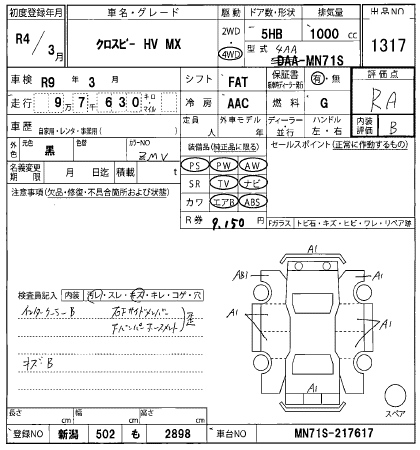 初度登録年月 車名・グレード 駆動 ドア数・形状 排気量 出品NO
R4/3月 クロスビー HV MX 2WD・4WD 5HB 1000cc 1317
型式 4AA DAA-MN71S
車検 R9年 3月 シフト FAT 保証書 有・無 評価点
走行 9万7千630 キロ・マイル 冷房 AAC 燃料 G RA
車歴 自家用・レンタ・事業用( ) 定員 人 外車モデル 年 ディーラー・並行 ハンドル 左・右 内装評価 B
外色 元色 黒 色替 カラーNO ZMV 装備品(純正品に限る) セールスポイント(正常に作動するもの)
名義変更期限 月 日迄 積載 t PS PW AW
注意事項(欠品・修復・不具合箇所および状態) SR TV ナビ
カワ エアB ABS
R券 9,150円 Fガラス トビ石・キズ・ヒビ・ワレ・リペア跡
A1
AB1 A1
検査員記入 内装 汚レ・スレ・キズ・キレ・コゲ・穴
インナーケーシーB 右Fサイドメンバー
A1 A1
FバンパーホースメントF 歪
キズB
A1 A1
スペア
長さ cm 幅 cm 高さ cm
登録NO 新潟 502 も 2898 車台NO MN71S-217617